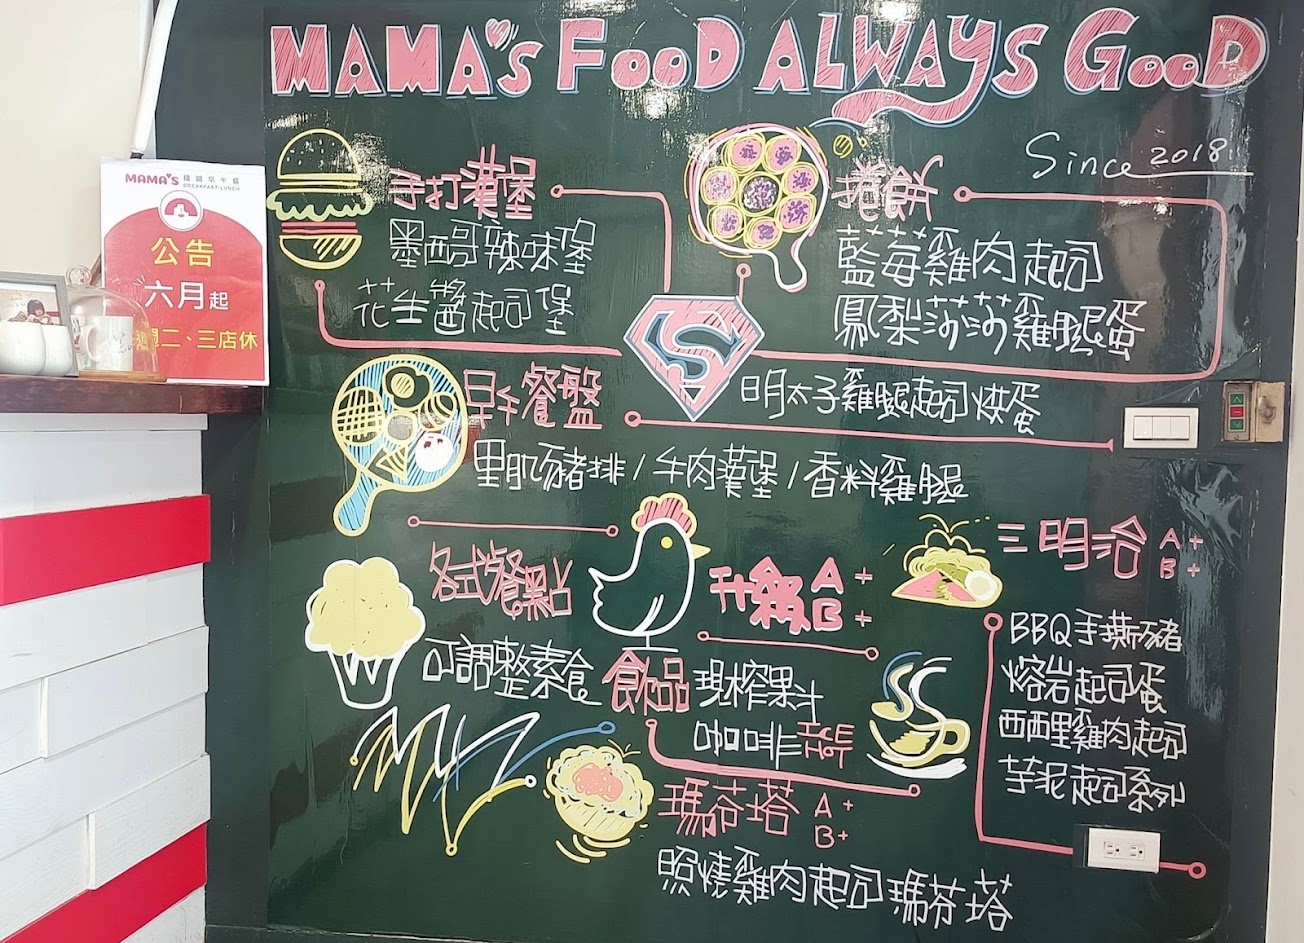 MAMA's FOOD ALWAYS GOOD
Since 2018
MAMA'S
BREAKFAST·LUNCH
公告
六月起
週二、三店休
手打漢堡
墨西哥辣味堡
花生醬起司堡
捲餅
藍莓雞肉起司
鳳梨莎莎雞腿蛋
明太子雞腿起司烘蛋
早午餐盤
里肌豬排/牛肉漢堡/香料雞腿
各式餐點
可調整素食
升級 A+
B+
飲品 現榨果汁
咖啡
三明治 A+
B+
BBQ手撕豬
熔岩起司蛋
西西里雞肉起司
芋泥起司系列
瑪芬塔 A+
B+
照燒雞肉起司瑪芬塔